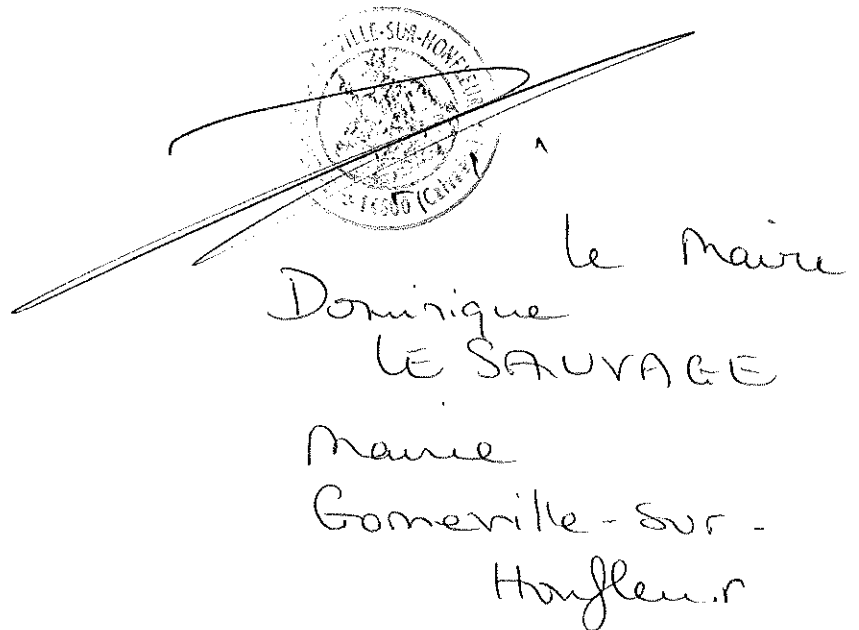 VILLE-SUR-HONFLEUR
14600 (Calvados)
le Maire
Dominique
LE SAUVAGE
Mairie
Gonneville-sur-
Honfleur